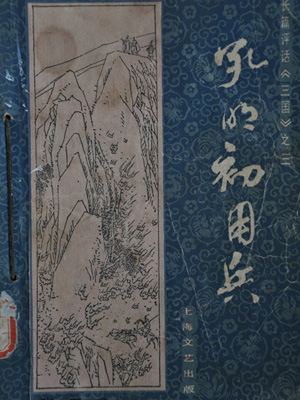 长篇评话《三国》之三
孔明初用兵
上海文艺出版